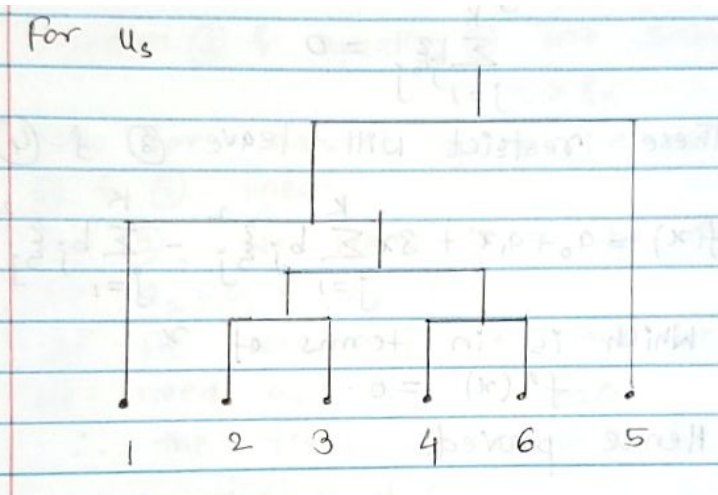 For u₅
1 2 3 4 6 5